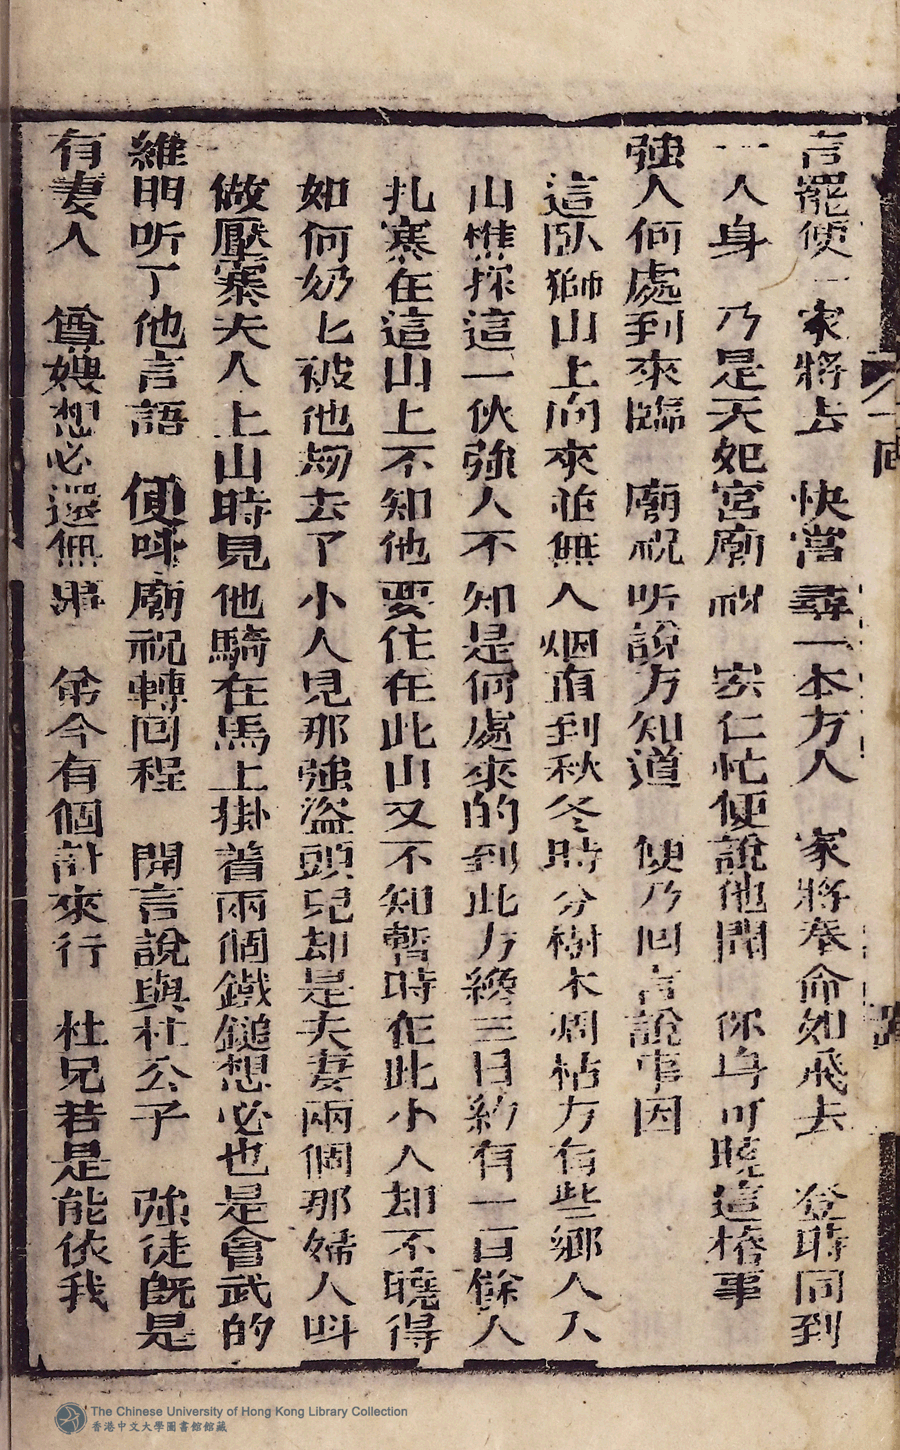 言罷便一家將去　快當尋一本方人　家將奉命如飛去　登時同到
一人身　乃是天妃宮廟祝　宏仁忙便說他聞　你乌可曉這樁事
強人何處到來臨　廟祝听說方知道　便乃回言說事因
這臥獅山上向來並無人烟直到秋冬時分樹木凋枯方有些鄉人入
山樵採這一伙強人不知是何處來的到此方纔三日約有一百餘人
扎寨在這山上不知他要住在此山又不知暫時在此小人却不曉得
如何奶匕被他刼去了小人見那強盜頭兒却是夫妻兩個那婦人呌
做壓寨夫人上山時見他騎在馬上掛着兩個鐵鎚想必也是會武的
維明听了他言語　便呌廟祝轉回程　開言說與杜公子　強徒既是
有妻人　尊嫂想必還無事　弟今有個計來行　杜兄若是能依我
回
The Chinese University of Hong Kong Library Collection
香港中文大學圖書館館藏